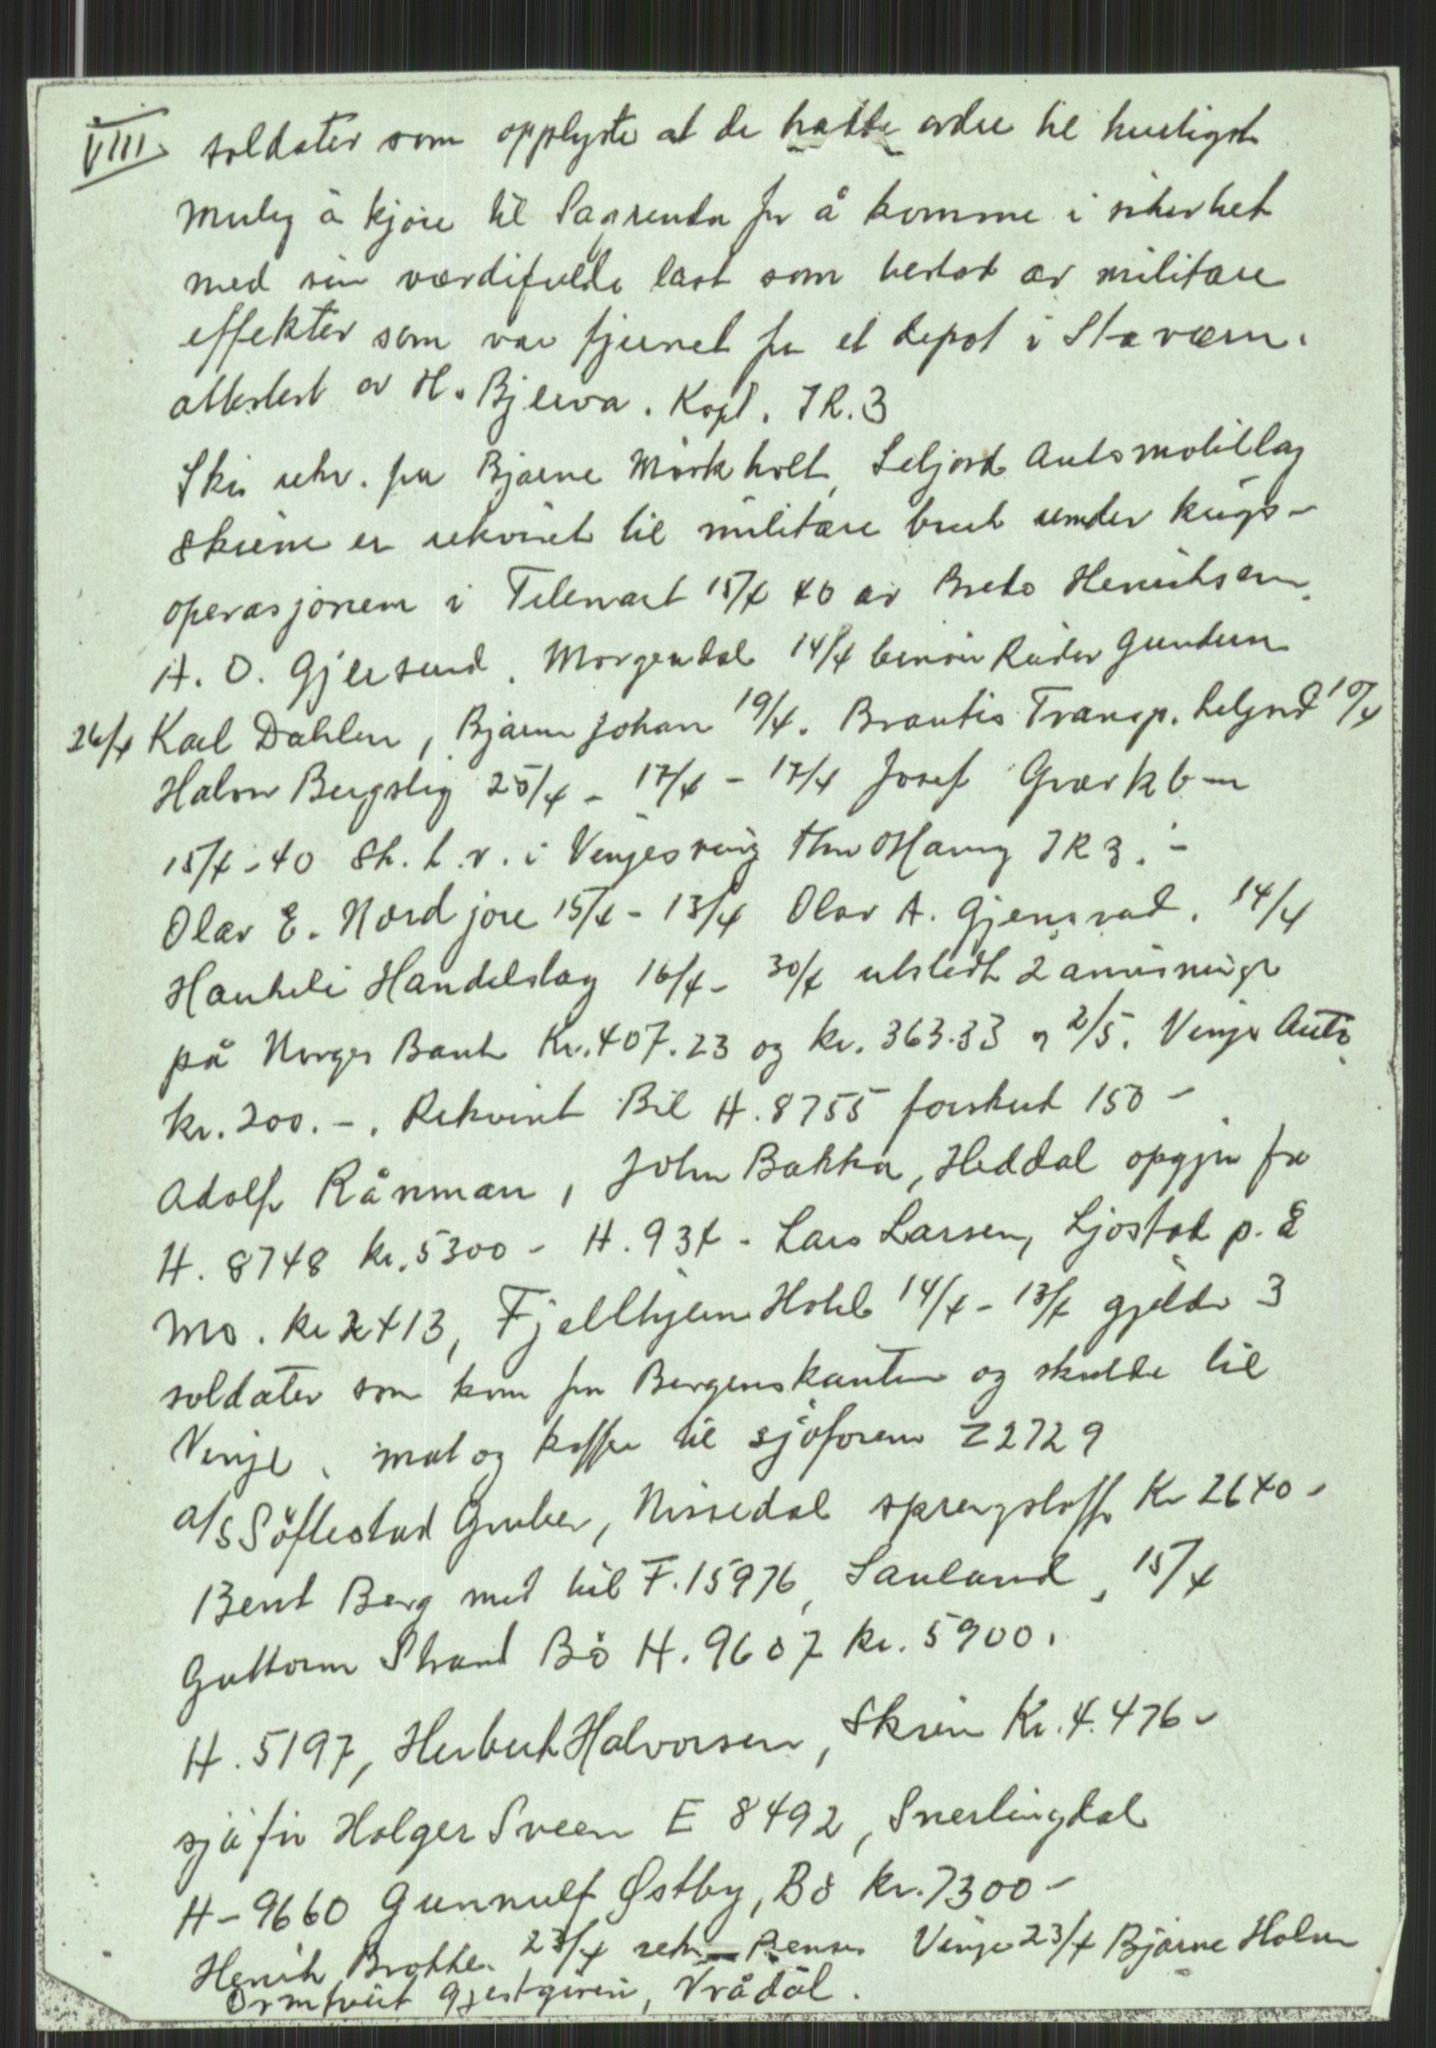 VIII. soldater som opplyste at de hadde ordre til hurtigst
mulig å kjöre til Sagrenda for å komme i sikerhet
med sin værdifulde last som bestod av militære
effekter som var fjernet fra et depot i Staværn.
attestert av H. Bjerva. Kapt. IR. 3
Ski rekv. fra Bjarne Mörkholt, Seljord Automobillag
Skiene er rekvirert til militære bruk under krigs-
operasjonene i Telemark 15/4 40 av Henriksen.
H. O. Gjersund. Morgendal 14/4 Gundersen
26/4 Karl Dahlen, Bjarne Johan 19/4. Transp. Seljord 10/4
Halvor Bergslig 25/4 - 17/4 - 17/4 Josef
15/4-40 Sk. L. v. i Vinjesving IR 3. -
Olav E. Nordjore 15/4 - 13/4 Olav A. . 14/4
Haukeli Handelslag 16/4 - 30/4 utstedt 2 anvisninger
på Norges Bank Kr. 407.23 og kr. 363.33 og 2/5. Vinje Auto
kr. 200.-. Rekvirert Bil H. 8755 forskut 150-
Adolf Rånman, John Bakka, Heddal opgjør fra
H. 8748 kr. 5300 - H. 934 - Lars Larsen, Ljosstad p. E
Mo. kr 2413, Fjellhjem Hotel 14/4 - 13/4 gjelder 3
soldater som kom fra Bergenskanten og skulde til
Vinje. mat og kaffe til sjåforen Z 2729
A/S Söftestad Gruber, Nissedal sprengstoff Kr 2640-
Bent Berg med bil F. 15976, Sauland, 15/4
Guttorm Strand Bö H. 9607 kr. 5900.
H. 5197, Herbert Halvorsen, Skien Kr. 4.476-
sjåför Holger Sveen E 8492, Snertingdal
H-9660 Gunnulf Østby, Bö kr. 7300-
Henrik Brokke. 23/4 rekv Vinje 23/4 Bjarne Holm
Ormtveit Gjestgiveri, Vrådal.